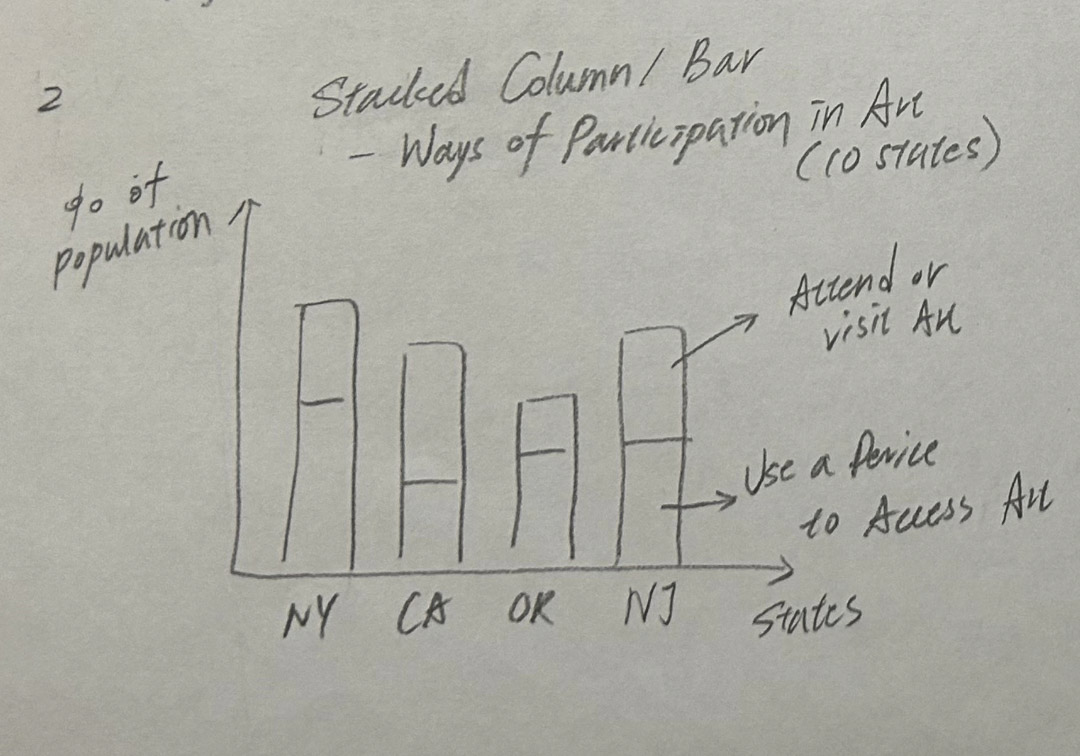 2
Stacked Column / Bar
- Ways of Participation in Art
(10 states)
% of
population
Attend or
visit Art
Use a Device
to Access Art
NY CA OR NJ States